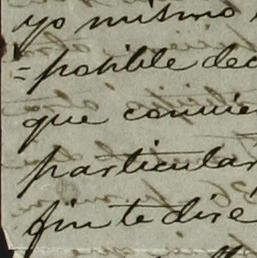 yo mismo
= posible dec
que convie
particular
fin te diré